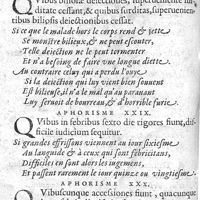 Quibus biliosæ deiectiones, superueniente sur-
ditate cessant, & quibus surditas, superuenien-
tibus biliosis deiectionibus cessat.
Si ce que le malade hors le corps rend & iette
Se monstre bilieux, & ne peut escouter,
Telle deiection ne le peut tormenter
Et n'a besoing de faire vne longue diette.
Au contraire celuy qui a perdu l'ouye
Si la deiection qui luy vient bien souuent
Est bilieuse, il n'a le mal qu'au parauant
Luy seruoit de bourreau, & d'horrible furie.
APHORISME XXIX.
QVibus in febribus sexto die rigores fiunt, dif-
ficile iudicium sequitur.
Si grandes effrissons viennent au iour sixiesme
Au languide & à ceux qui sont febricitans,
Difficiles en sont alors les iugemens,
Et passent rarement le iour quinze ou vingtiesme.
APHORISME XXX.
QVibuscunque accessiones fiunt, quacunque